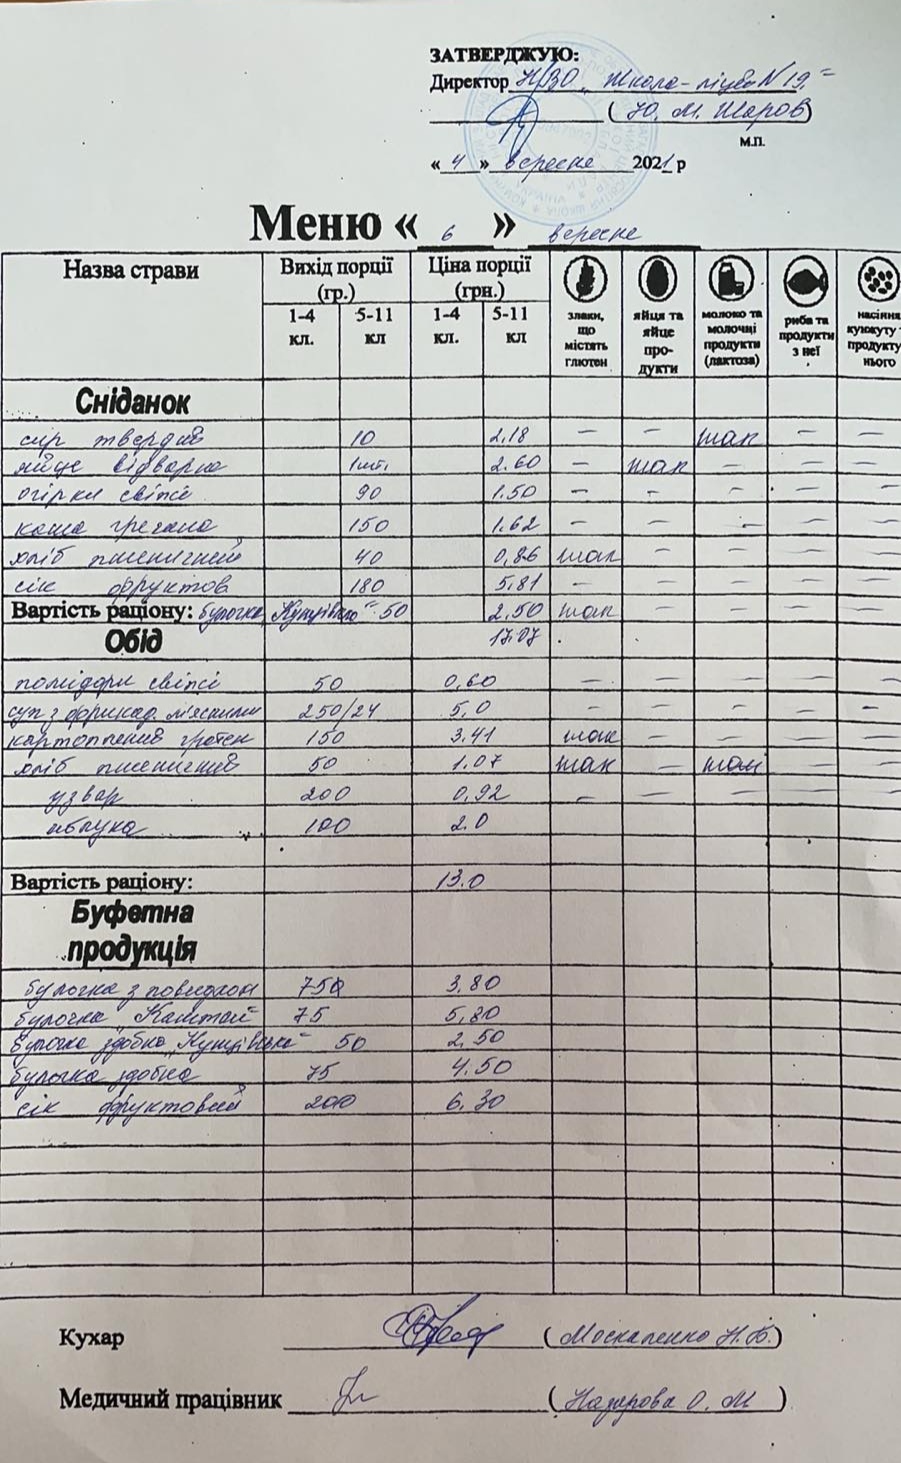 ЗАТВЕРДЖУЮ:
Директор НЗО „Школа-ліцей N 19"
( Ю. М. Шаров)
м.п.
« 4 » вересня 2021 р
Меню « 6 » вересня
Назва страви Вихід порції (гр.) Ціна порції (грн.) злаки, що містять глютен яйця та яйце про-дукти молоко та молочні продукти (лактоза) риба та продукти з неї насіння кунжуту продукту нього
1-4 кл. 5-11 кл 1-4 кл. 5-11 кл
Сніданок
сир твердий 10 2.18 – – так – –
яйце відварне 1шт. 2.60 – так – – –
огірки свіжі 90 1.50 – – – – –
каша гречана 150 1.62 – – – – –
хліб пшеничний 40 0,86 так – – – –
сік фруктов 180 5.81 – – – – –
Вартість раціону: булочка 50 2,50 так – – – –
Обід 17.07
помідори свіжі 50 0,60 – – – – –
суп з фрикад. м'ясними 250/24 5,0 – – – – –
картопляний 150 3.41 так – – – –
хліб пшеничний 50 1.07 так – так – –
узвар 200 0,92 – – – – –
яблука 100 2.0
Вартість раціону: 13.0
Буфетна продукція
булочка з повидлом 75 3.80
булочка „Каштан" 75 5,80
булочка здобна 50 2,50
булочка здобна 75 4.50
сік фруктовий 200 6.30
Кухар ( Москаленко Н.В.)
Медичний працівник ( Назарова О. М )